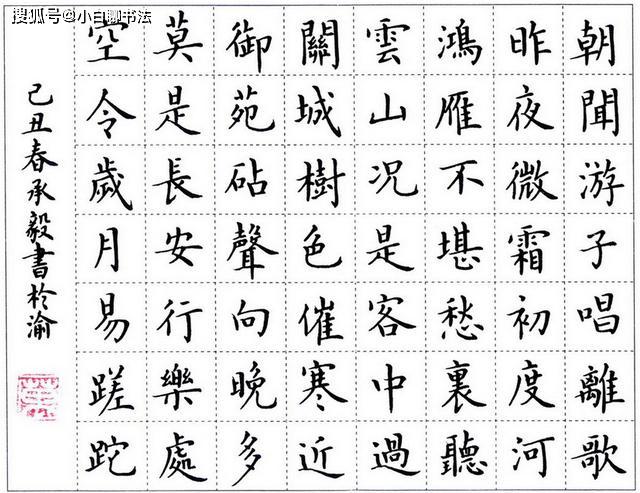 搜狐号@小白聊书法
朝聞游子唱離歌
昨夜微霜初度河
鴻雁不堪愁裏聽
雲山况是客中過
關城樹色催寒近
御苑砧聲向晚多
莫是長安行樂處
空令歲月易蹉跎
己丑春承毅書於渝